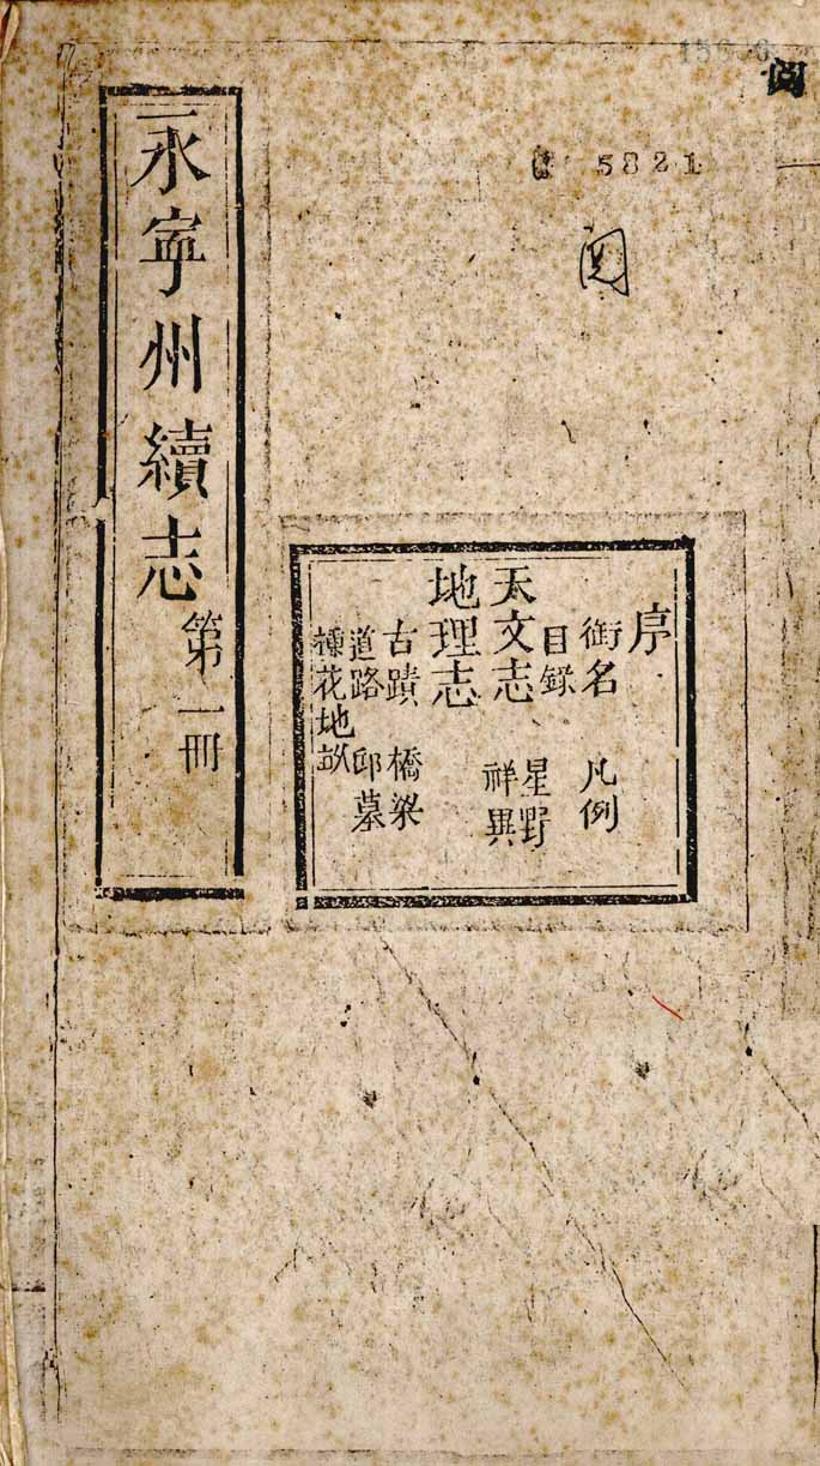 5821
序
銜名 凡例
目錄
天文志 星野
祥異
地理志
古蹟 橋梁
道路 邱墓
種花地畝
永寧州續志 第一冊